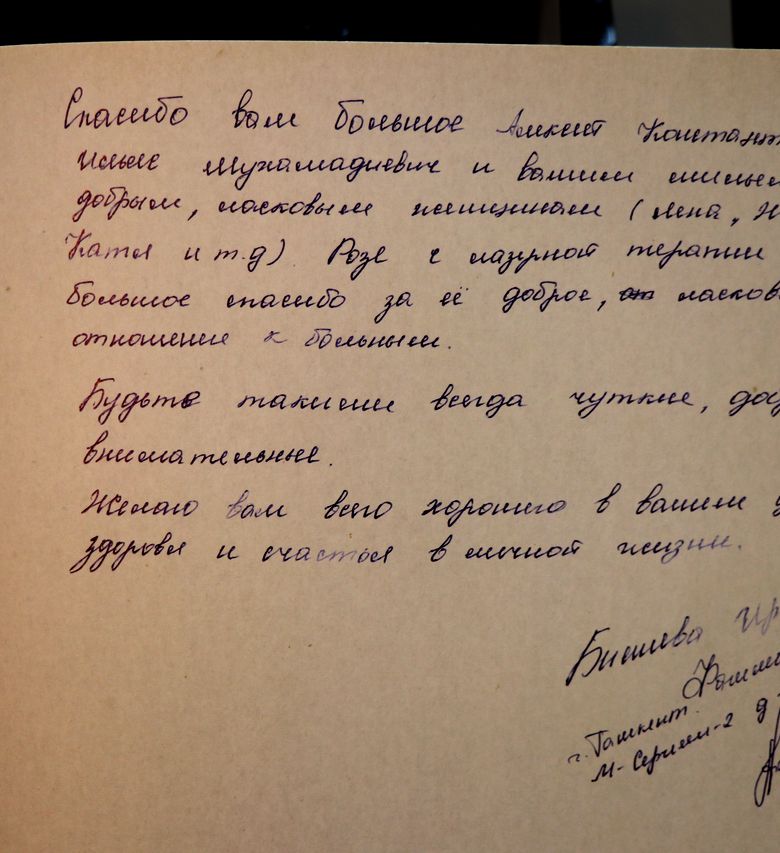 Спасибо вам большое Алексей Констант
Ильяс Мухамадиевич и вашим милым
добрым, ласковым женщинам (Лена, Н
Катя и т.д) Розе с лазурной терапии
большое спасибо за её доброе, от ласков
отношение к больным.
Будьте такими всегда чуткие, доб
внимательные.
Желаю вам всего хорошего в вашем д
здоровья и счастья в личной жизни.
Ир
г. Ташкент.
М-Сергели-2 д